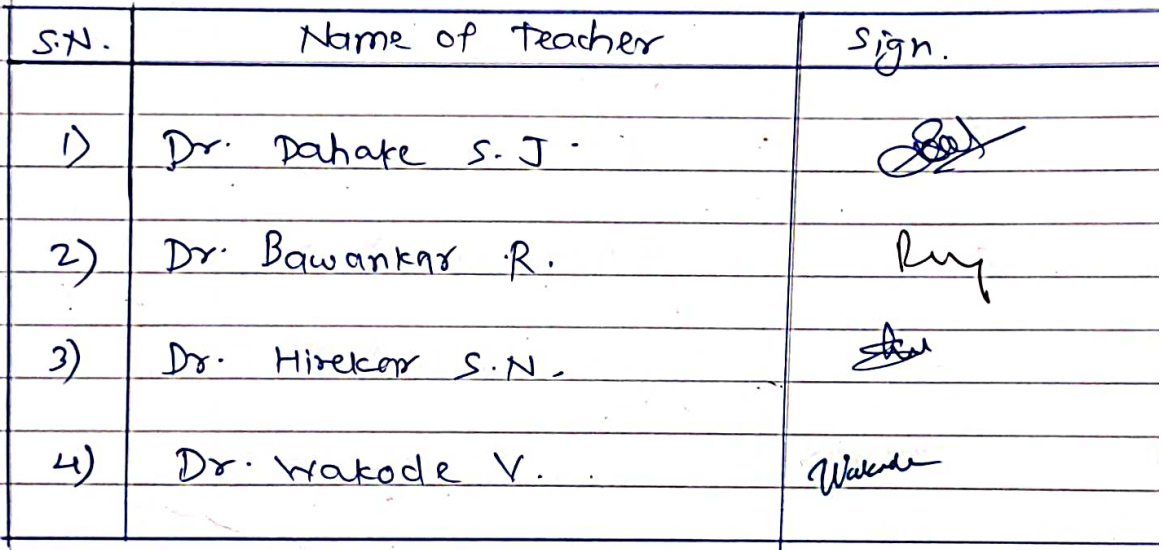 S.N. Name of Teacher Sign.
1) Dr. Dahake S.J.
2) Dr. Bawankar R.
3) Dr. Hirekar S.N.
4) Dr. Wakode V. Wakode